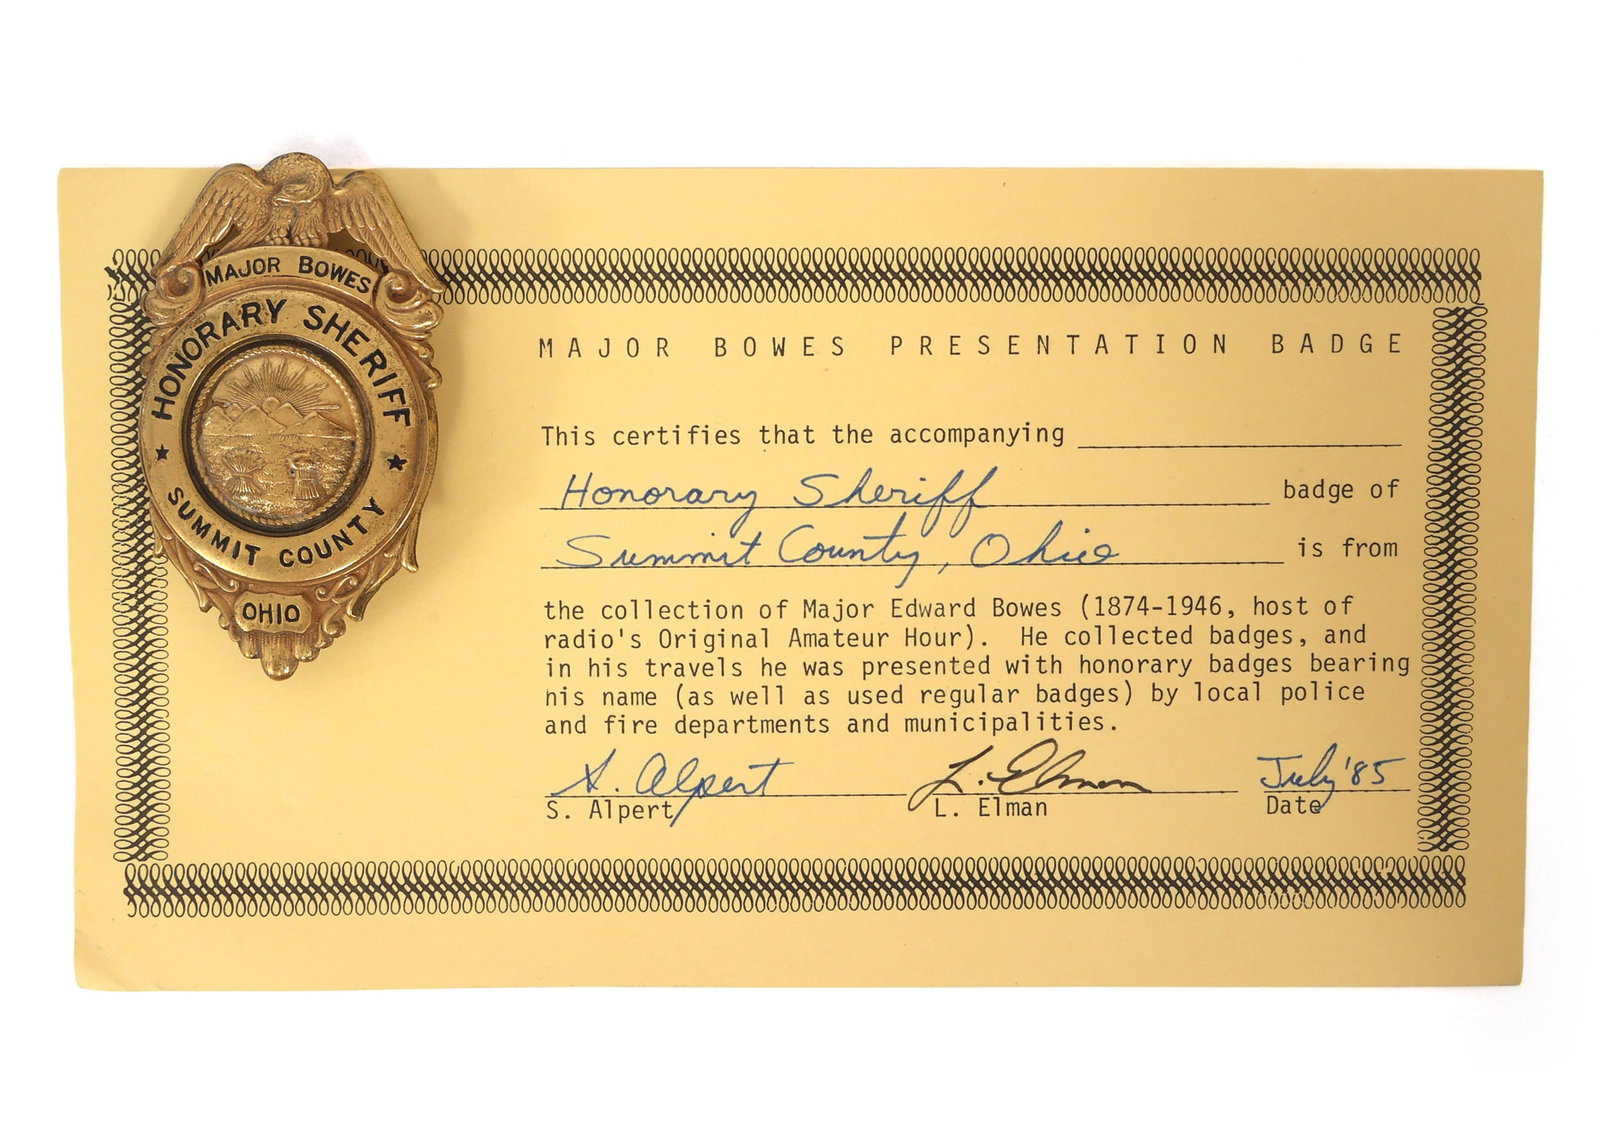 MAJOR BOWES
HONORARY SHERIFF
SUMMIT COUNTY
OHIO
MAJOR BOWES PRESENTATION BADGE
This certifies that the accompanying
Honorary Sheriff badge of
Summit County, Ohio is from
the collection of Major Edward Bowes (1874-1946, host of
radio's Original Amateur Hour). He collected badges, and
in his travels he was presented with honorary badges bearing
his name (as well as used regular badges) by local police
and fire departments and municipalities.
S. Alpert L. Elman July '85
S. Alpert L. Elman Date